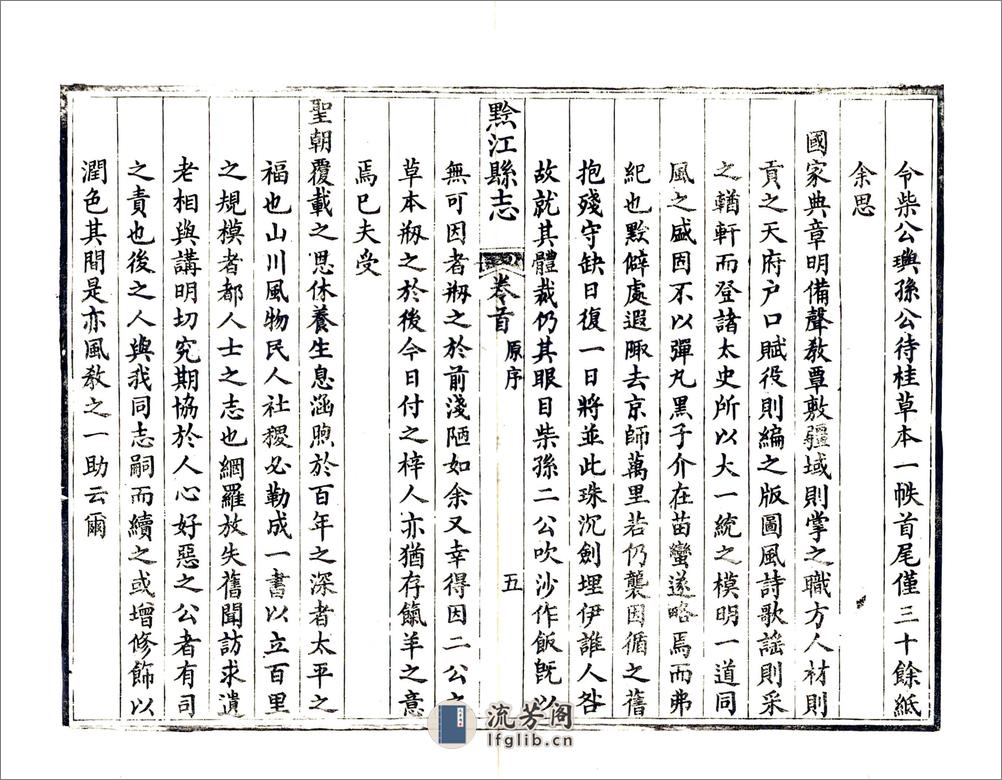 令柴公璵孫公待桂草本一帙首尾僅三十餘紙
余思
國家典章明備聲教覃敷疆域則掌之職方人材則
貢之天府户口賦役則編之版圖風詩歌謡則采
之輶軒而登諸太史所以大一統之模明一道同
風之盛固不以彈丸黒子介在苗蠻遂略焉而弗
紀也黔僻處遐陬去京師萬里若仍襲因循之舊
抱殘守缺日復一日將並此珠沉劍埋伊誰人咎
故就其體裁仍其眼目柴孫二公吹沙作飯旣以
黔江縣志
卷首
原序
五
無可因者刱之於前淺陋如余又幸得因二公之
草本刱之於後今日付之梓人亦猶存餼羊之意
焉已夫受
聖朝覆載之恩休養生息涵煦於百年之深者太平之
福也山川風物民人社稷必勒成一書以立百里
之規模者都人士之志也網羅放失舊聞訪求遺
老相與講明切究期協於人心好惡之公者有司
之責也後之人與我同志嗣而續之或增修飾以
潤色其間是亦風教之一助云爾
流芳阁
lfglib.cn